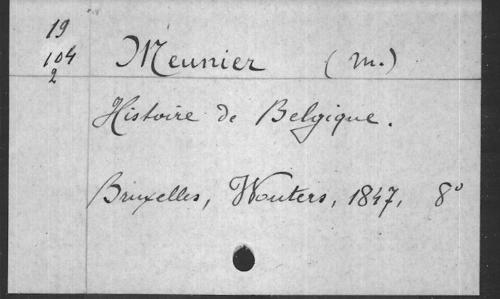 19
104 Meunier (M.)
2
Histoire de Belgique.
Bruxelles, Wouters, 1847, 8º